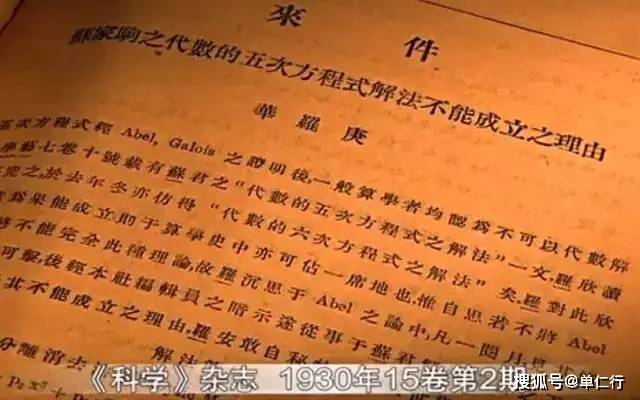 來件
蘇家駒之代數的五次方程式解法不能成立之理由
華羅庚
五次方程式經 Abel, Galois 之證明後,一般算學者均認爲不可以代數解
學藝七卷十號載有蘇君之“代數的五次方程式之解法”一文,羅欣讀
究之,於去年冬亦仿得“代數的六次方程式之解法”矣,羅對此欣
爲果能成立則于算學史中亦可佔一席地也,惟自思若不將 Abel
不能完全此種理論,故羅沉思于 Abel 之論中,凡一閱月
可擊,後經本社編輯員之暗示遂從事于蘇君
其不能成立之理由,羅安敢自秘
分離消去
《科学》杂志 1930年15卷第2期
搜狐号@单仁行